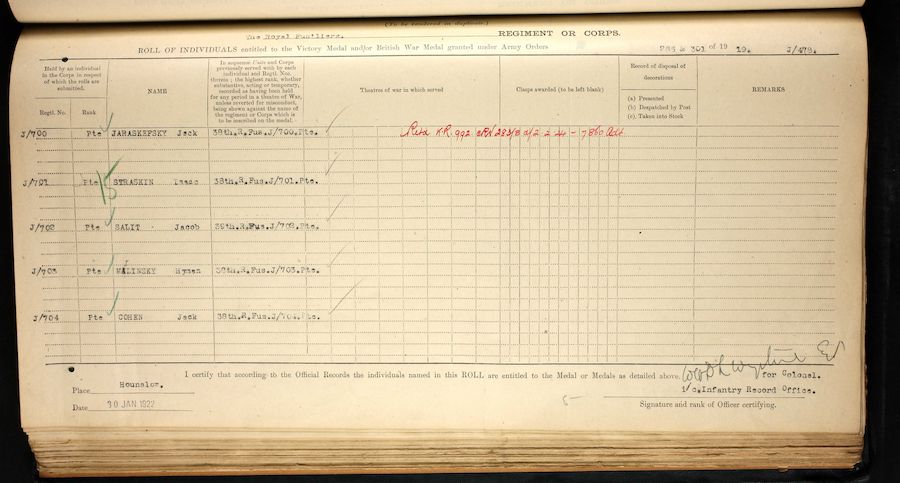 (To be rendered in duplicate.)
The Royal Fusiliers. REGIMENT OR CORPS.
ROLL OF INDIVIDUALS entitled to the Victory Medal and/or British War Medal granted under Army Orders 266 & 301 of 19 19. J/478.
Held by an individual in the Corps in respect of which the rolls are submitted.
Regtl. No.
Rank
NAME
In sequence Units and Corps
previously served with by each
individual and Regtl. Nos.
therein; the highest rank, whether
substantive, acting or temporary,
recorded as having been held
for any period in a theatre of War,
unless reverted for misconduct,
being shown against the name of
the regiment or Corps which is
to be inscribed on the medal.
Theatres of war in which served
Clasps awarded (to be left blank)
Record of disposal of
decorations
(a) Presented
(b) Despatched by Post
(c) Taken into Stock
REMARKS
J/700 Pte JARASKEFSKY Jack 38th.R.Fus.J/700.Pte. K.R. 992.
J/701 Pte STRASKIN Isaac 38th.R.Fus.J/701.Pte.
J/702 Pte SALIT Jacob 39th.R.Fus.J/702.Pte.
J/703 Pte MALINSKY Hyman 38th.R.Fus.J/703.Pte.
J/704 Pte COHEN Jack 38th.R.Fus.J/704.Pte.
I certify that according to the Official Records the individuals named in this ROLL are entitled to the Medal or Medals as detailed above.
for Colonel.
Place Hounslow.
i/c.Infantry Record Office.
Date 30 JAN 1922
Signature and rank of Officer certifying.